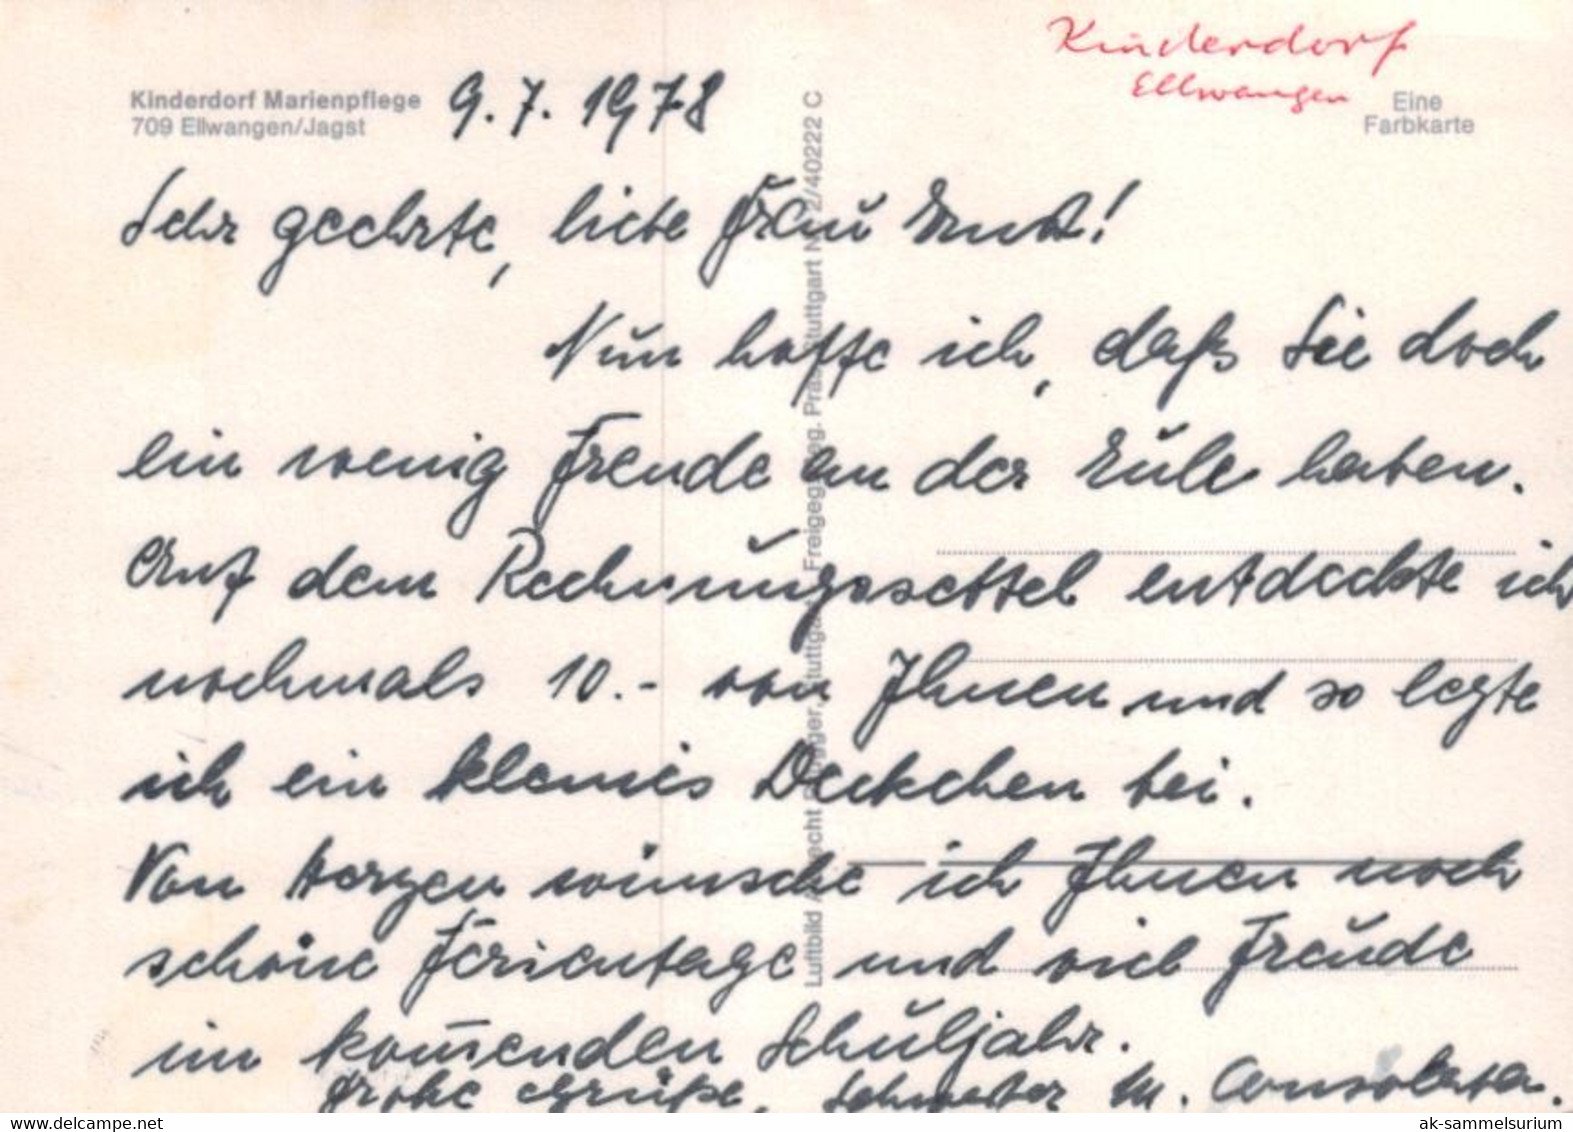 Kinderdorf
Ellwangen
Eine
Farbkarte
Kinderdorf Marienpflege
709 Ellwangen/Jagst
9.7.1978
Sehr geehrte, liebe Frau Ernst!
Nun hoffe ich, daß Sie doch
ein wenig Freude an der Eule haben.
Auf dem Rechnungszettel entdeckte ich
nochmals 10.- von Ihnen und so legte
ich ein kleines Deckchen bei.
Von Herzen wünsche ich Ihnen noch
schöne Ferientage und viel Freude
im kom̄enden Schuljahr.
Frohe Grüße, Schwester M. Consolata.
Luftbild Stuttgart Freigeg. Reg. Präs. Stuttgart Nr. 2/40222 C
www.delcampe.net
ak-sammelsurium